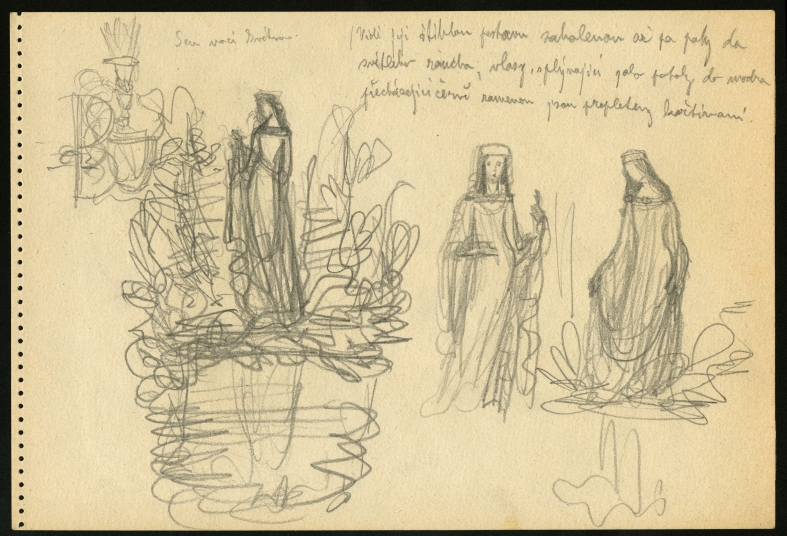 Sen noci
Vidí její štíhlou postavu zahalenou až po paty do
světlého roucha, vlasy, splývající jako potoky do modra
přecházející černě ramenou jsou propleteny